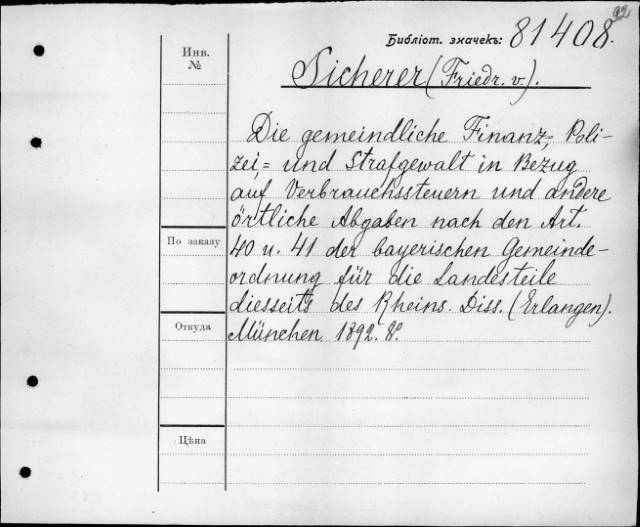 92
Библіот. значекъ: 81408.
Инв.
№
Sicherer (Friedr. v.).
Die gemeindliche Finanz-, Poli-
zei,= und Strafgewalt in Bezug
auf Verbrauchssteuern und andere
örtliche Abgaben nach den Art.
40 u. 41 der bayerischen Gemeinde-
ordnung für die Landesteile
diesseits des Rheins. Diss. (Erlangen).
München 1892. 8º.
По заказу
Откуда
Цѣна